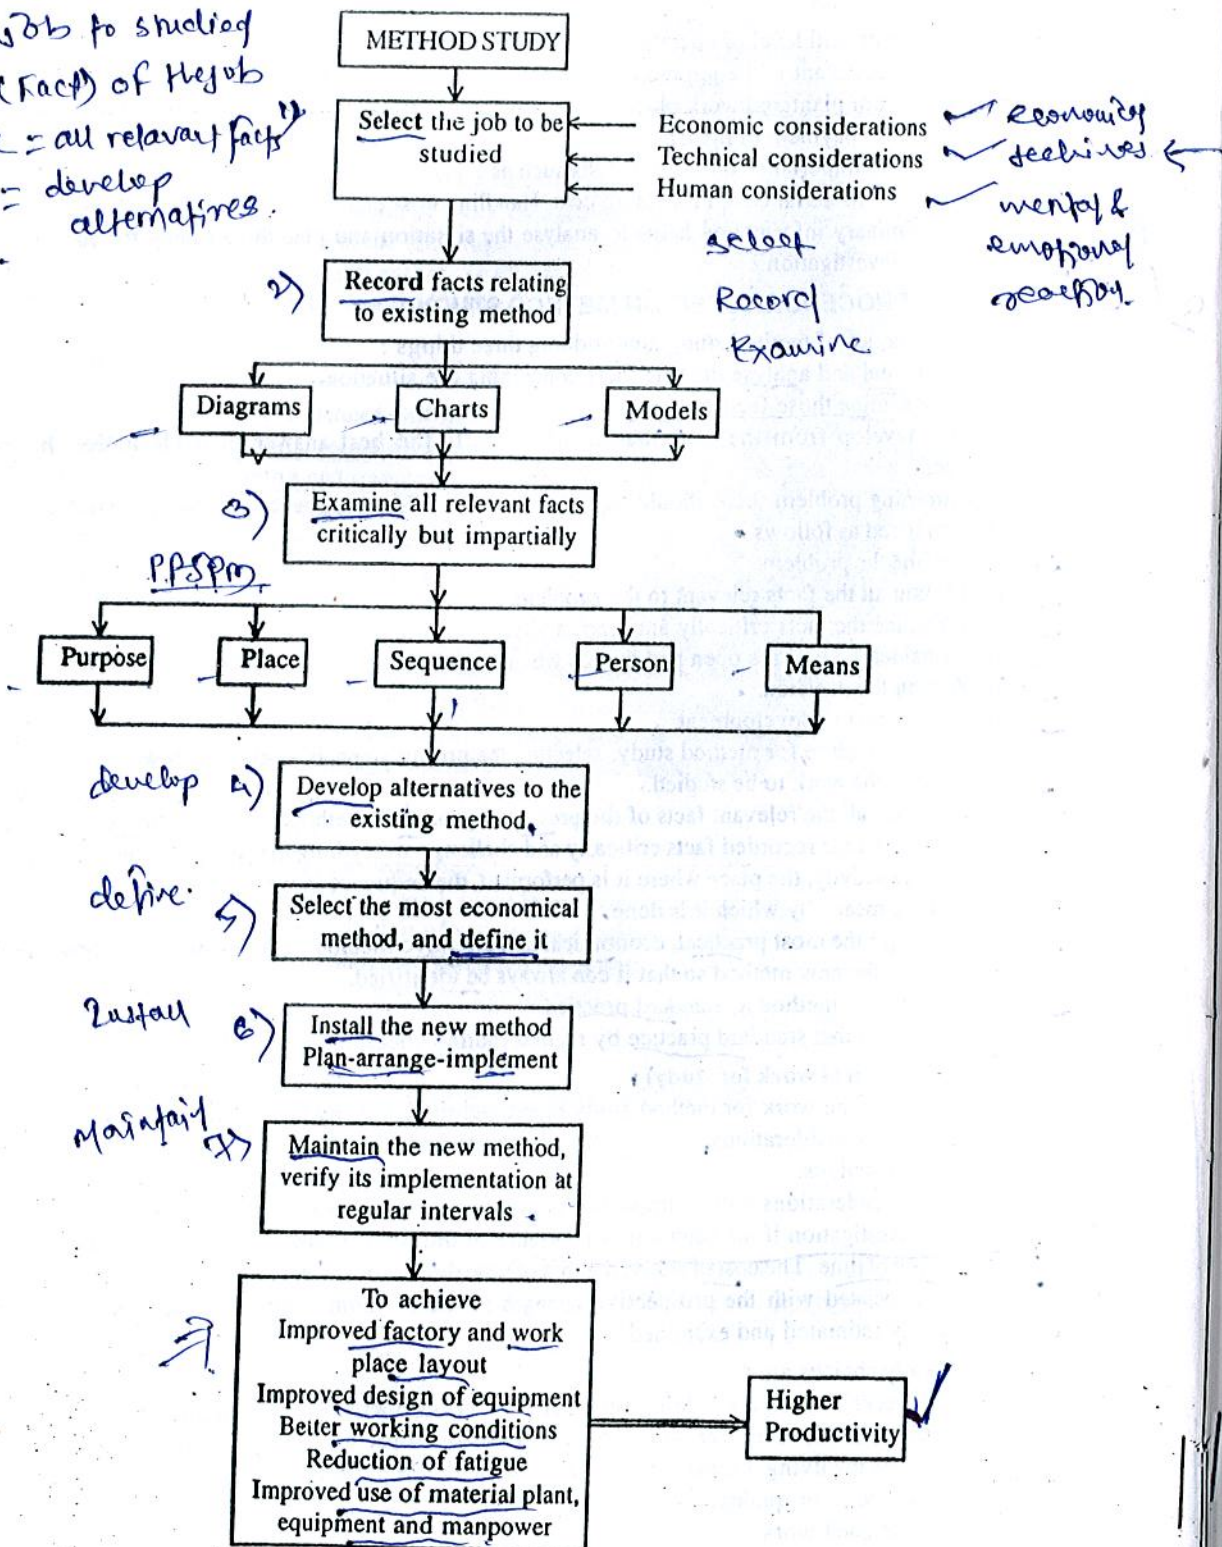 Job to studied
(Fact) of the job
= all relavant facts
= develop
alternatives.
METHOD STUDY
1)
Select the job to be
studied
Economic considerations
Technical considerations
Human considerations
mental &
emotional
select
Record
Examine
2)
Record facts relating
to existing method
Diagrams
Charts
Models
3)
Examine all relevant facts
critically but impartially
PPSPM
Purpose
Place
Sequence
Person
Means
develop 4)
Develop alternatives to the
existing method.
define. 5)
Select the most economical
method, and define it
Install 6)
Install the new method
Plan-arrange-implement
Maintain 7)
Maintain the new method,
verify its implementation at
regular intervals .
To achieve
Improved factory and work
place layout
Improved design of equipment
Better working conditions
Reduction of fatigue
Improved use of material plant,
equipment and manpower
Higher
Productivity